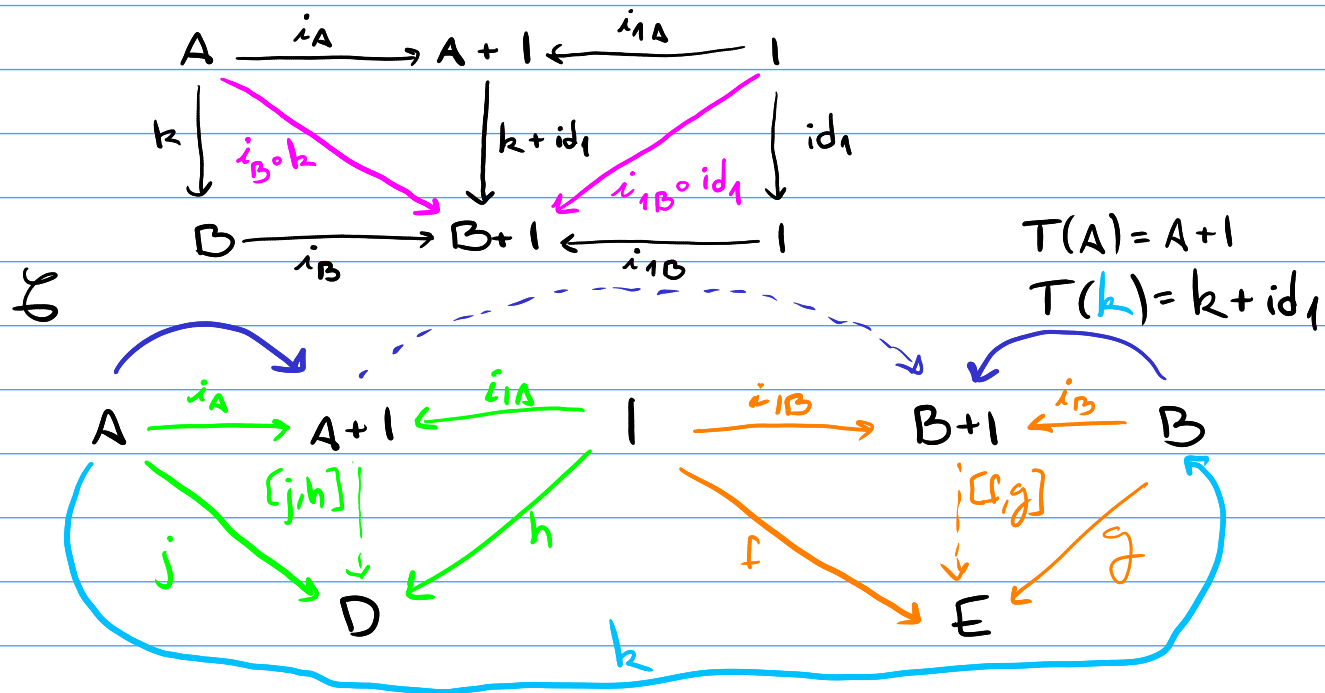 A i_A A + 1 i_{1A} 1
k i_B∘k k + id_1 i_{1B}∘id_1 id_1
B i_B B + 1 i_{1B} 1
T(A) = A + 1
T(k) = k + id_1
𝒞
A i_A A + 1 i_{1A} 1 i_{1B} B + 1 i_B B
j [j,h] h f [f,g] g
D E
k